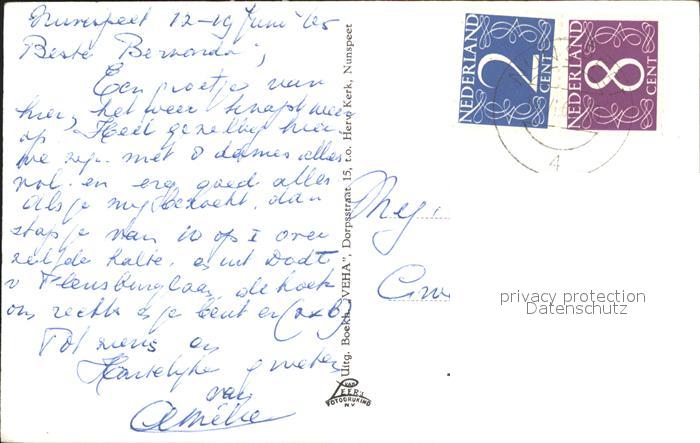 Nunspeet 12-19 Juni '65
Beste Bernarda,
Een groetje van
hier, het weer knapt weer
op. Heel gezellig hier
we zijn met 8 dames alles
vol. en erg goed alles
Als je mij bezoekt, dan
stap je van 10 op I over
zelfde halte,
v Flensburglaan, de hoek
om rechts en je bent er
Tot ziens en
Hartelijke groeten
van
Amélie
Uitg. Boekh. „VEHA", Dorpsstraat 15, t.o. Herv. Kerk, Nunspeet
NEDERLAND
2
CENT
NEDERLAND
8
CENT
4
Mej.
privacy protection
Datenschutz
VAN
LEER'S
FOTODRUKIND
N.V.